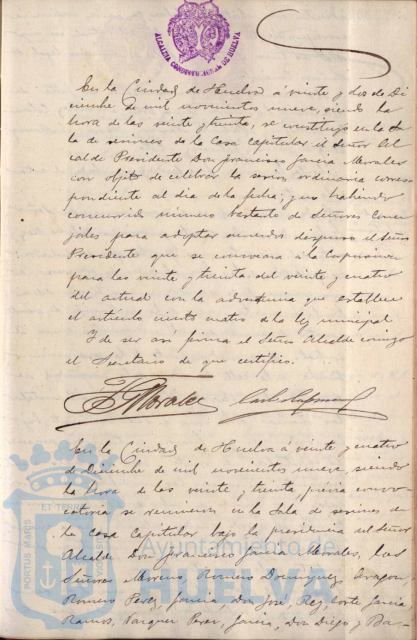 ALCALDIA CONSTITUCIONAL DE HUELVA
En la Ciudad de Huelva á veinte y dos de Di
ciembre de mil novecientos nueve, siendo la
hora de las veinte y treinta, se constituyó en la Sa
la de sesiones de la Casa Capitular el Señor Al
calde Presidente Don Francisco García Morales
con objeto de celebrar la sesión ordinaria corres
pondiente al día de la fecha; y no habiendo
concurrido número bastante de Señores Conce
jales para adoptar acuerdos dispuso el Señor
Presidente que se convocara á la Corporación
para las veinte y treinta del veinte y cuatro
del actual con la advertencia que establece
el artículo ciento cuatro de la ley municipal
Y de ser así firma el Señor Alcalde conmigo
el Secretario de que certifico.
F. G. Morales
En la Ciudad de Huelva á veinte y cuatro
de Diciembre de mil novecientos nueve, siendo
la hora de las veinte y treinta, previa convo
catoria se reunieron en la Sala de sesiones de
la Casa Capitular bajo la presidencia del Señor
Alcalde Don Francisco García Morales, los
Señores Moreno, Romero Dominguez, Aragon,
Romero Perez, García, Don José, Rey, Corte García
Ramos, Vazquez Perez, García, Don Diego y Ba-
Ayuntamiento de
HUELVA
PORTUS MARIS
ET TERRAE
CUSTODIA